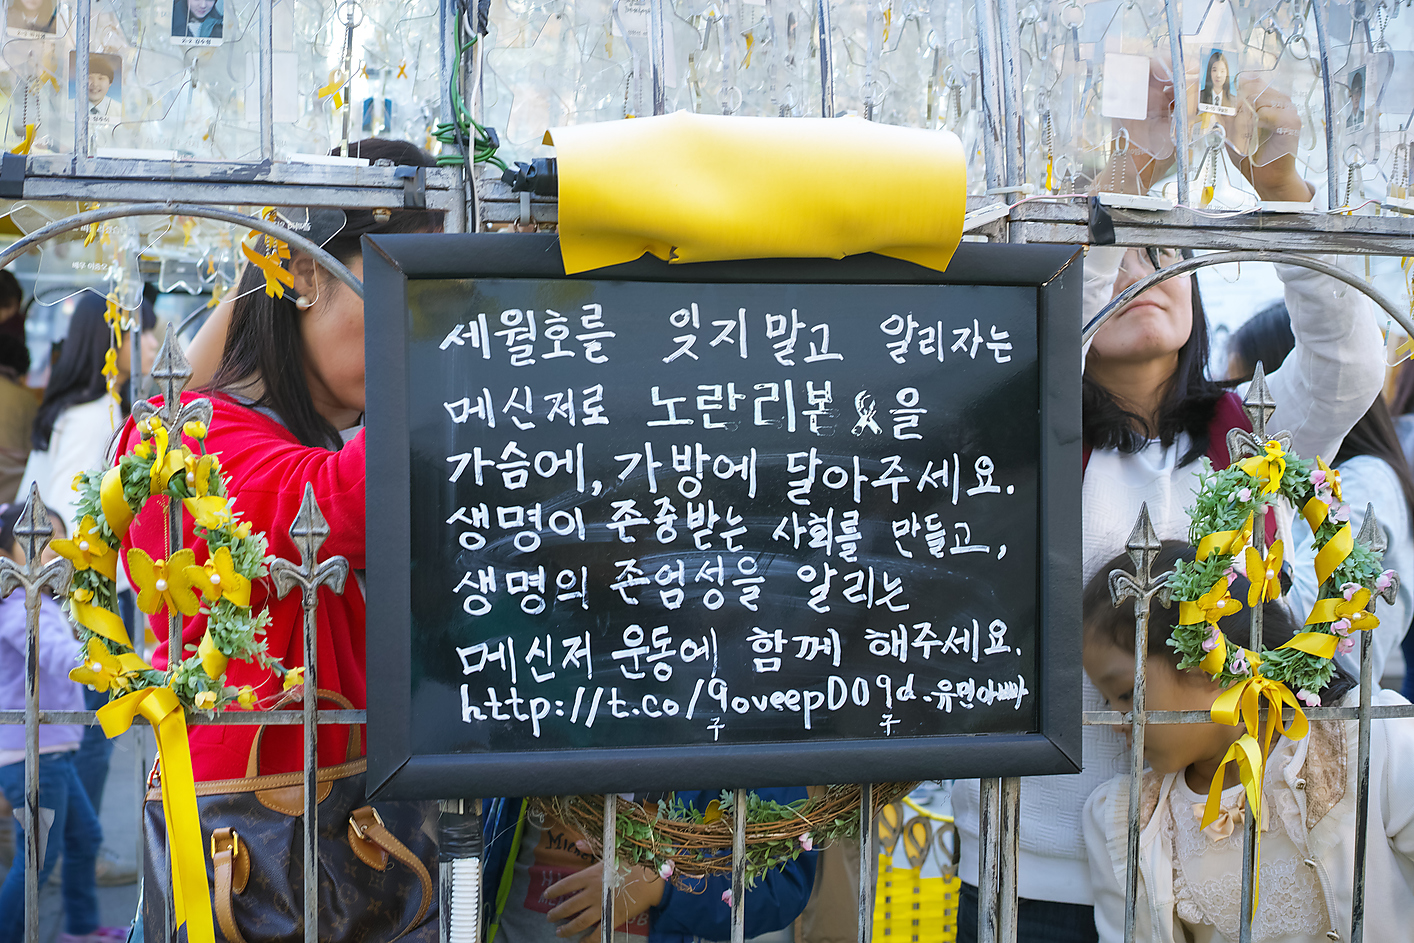 세월호를 잊지말고 알리자는
메신저로 노란리본을
가슴에, 가방에 달아주세요.
생명이 존중받는 사회를 만들고,
생명의 존엄성을 알리는
메신저 운동에 함께 해주세요.
http://t.co/9oveepDO9d -유민아빠
구 구